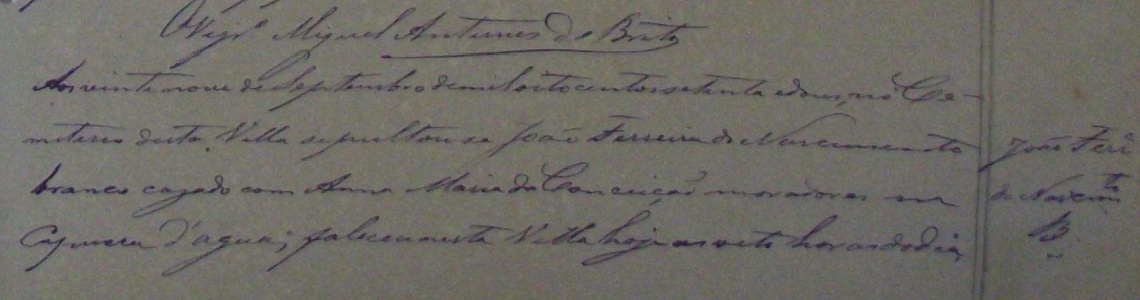 O Vigr.º Miguel Antunes de Brito
Aos vinte nove de Septembro de mil oito centos setenta e dous, no Ce-
miterio desta Villa sepultou se João Ferreira do Nascimento
branco cazado com Anna Maria da Conceição moradores na
d'agua; faleceu nesta Villa hoje as oito horas do dia
João Ferrª
do Nascimto
B.